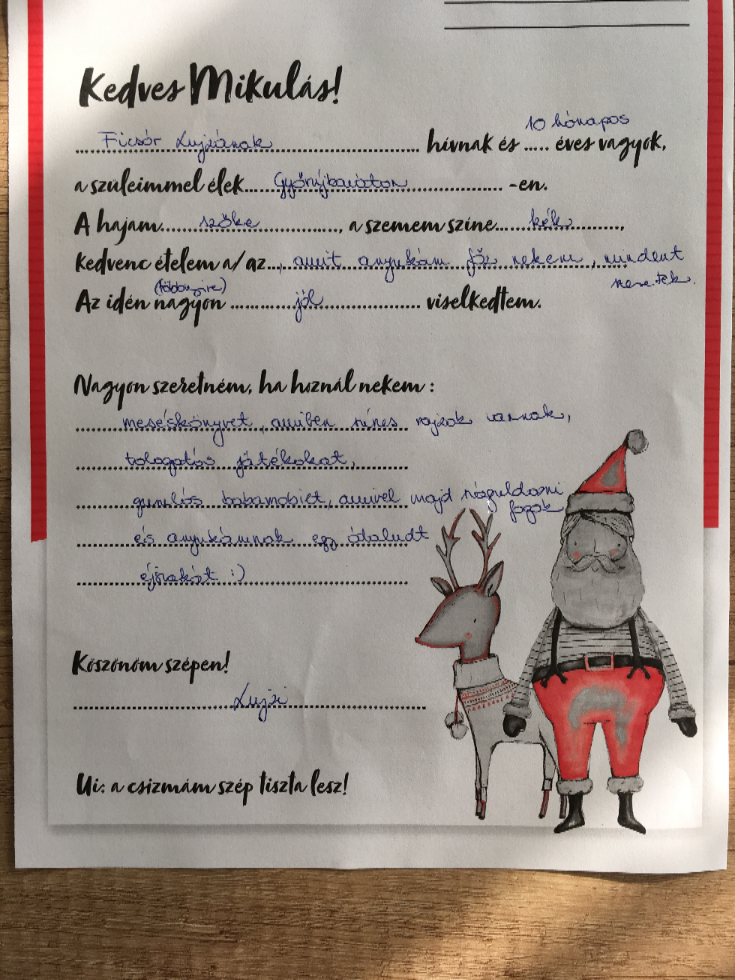 Kedves Mikulás!
Ficsór Lujzának hívnak és 10 hónapos éves vagyok,
a szüleimmel élek Győrújbaráton -en.
A hajam szőke, a szemem színe kék,
kedvenc ételem a/az amit anyukám főz nekem, mindent szeretek.
Az idén (többnyire) nagyon jól viselkedtem.
Nagyon szeretném, ha hoznál nekem:
meséskönyvet, amiben színes rajzok vannak,
tologatós játékokat,
gumilós babamobiet, amivel majd száguldozni fogok
és anyukámnak egy átaludt
éjszakát :)
Köszönöm szépen!
Lujzi
Ui: a csizmám szép tiszta lesz!